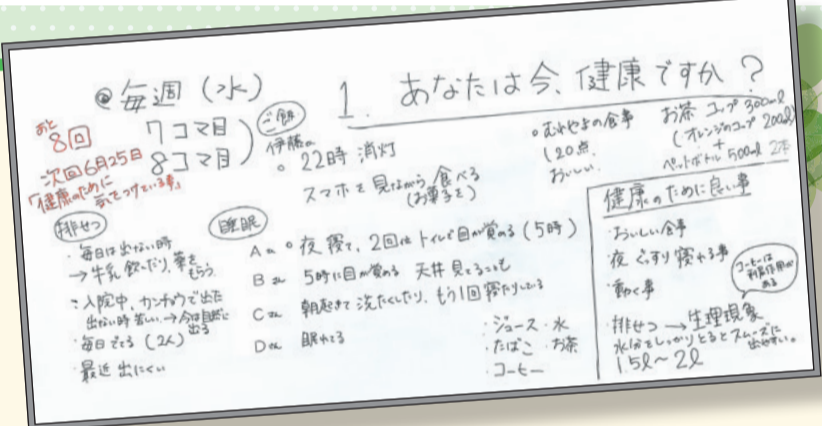 1. あなたは今、健康ですか？
◎毎週（水）
7コマ目
8コマ目
あと
8回
次回6月25日
「健康のために
気をつけている事」
ご飯
22時 消灯
スマホを見ながら食べる
(お菓子を)
の食事
20点
おいしい
お茶 コップ300ml
(オレンジのコップ200ml)
+
ペットボトル500ml 2本
排せつ
・毎日は出ない時
→牛乳飲んだり、薬を
もらう
入院中、カンチョウで出た
出ない時苦しい→今は自然に
出る
・毎日でてる(2人)
・最近出にくい
睡眠
Aさん 夜寝て、2回はトイレで目が覚める(5時)
Bさん 5時に目が覚める 天井見てることも
Cさん 朝起きて洗たくしたり、もう1回寝たりしてる
Dさん 眠れてる
・ジュース・水
・たばこ・お茶
・コーヒー
健康のために良い事
・おいしい食事
・夜ぐっすり寝れる事
・動く事
・排せつ→生理現象
水分をしっかりとるとスムーズに
出やすい。
1.5l〜2l
コーヒーは
利尿作用が
ある